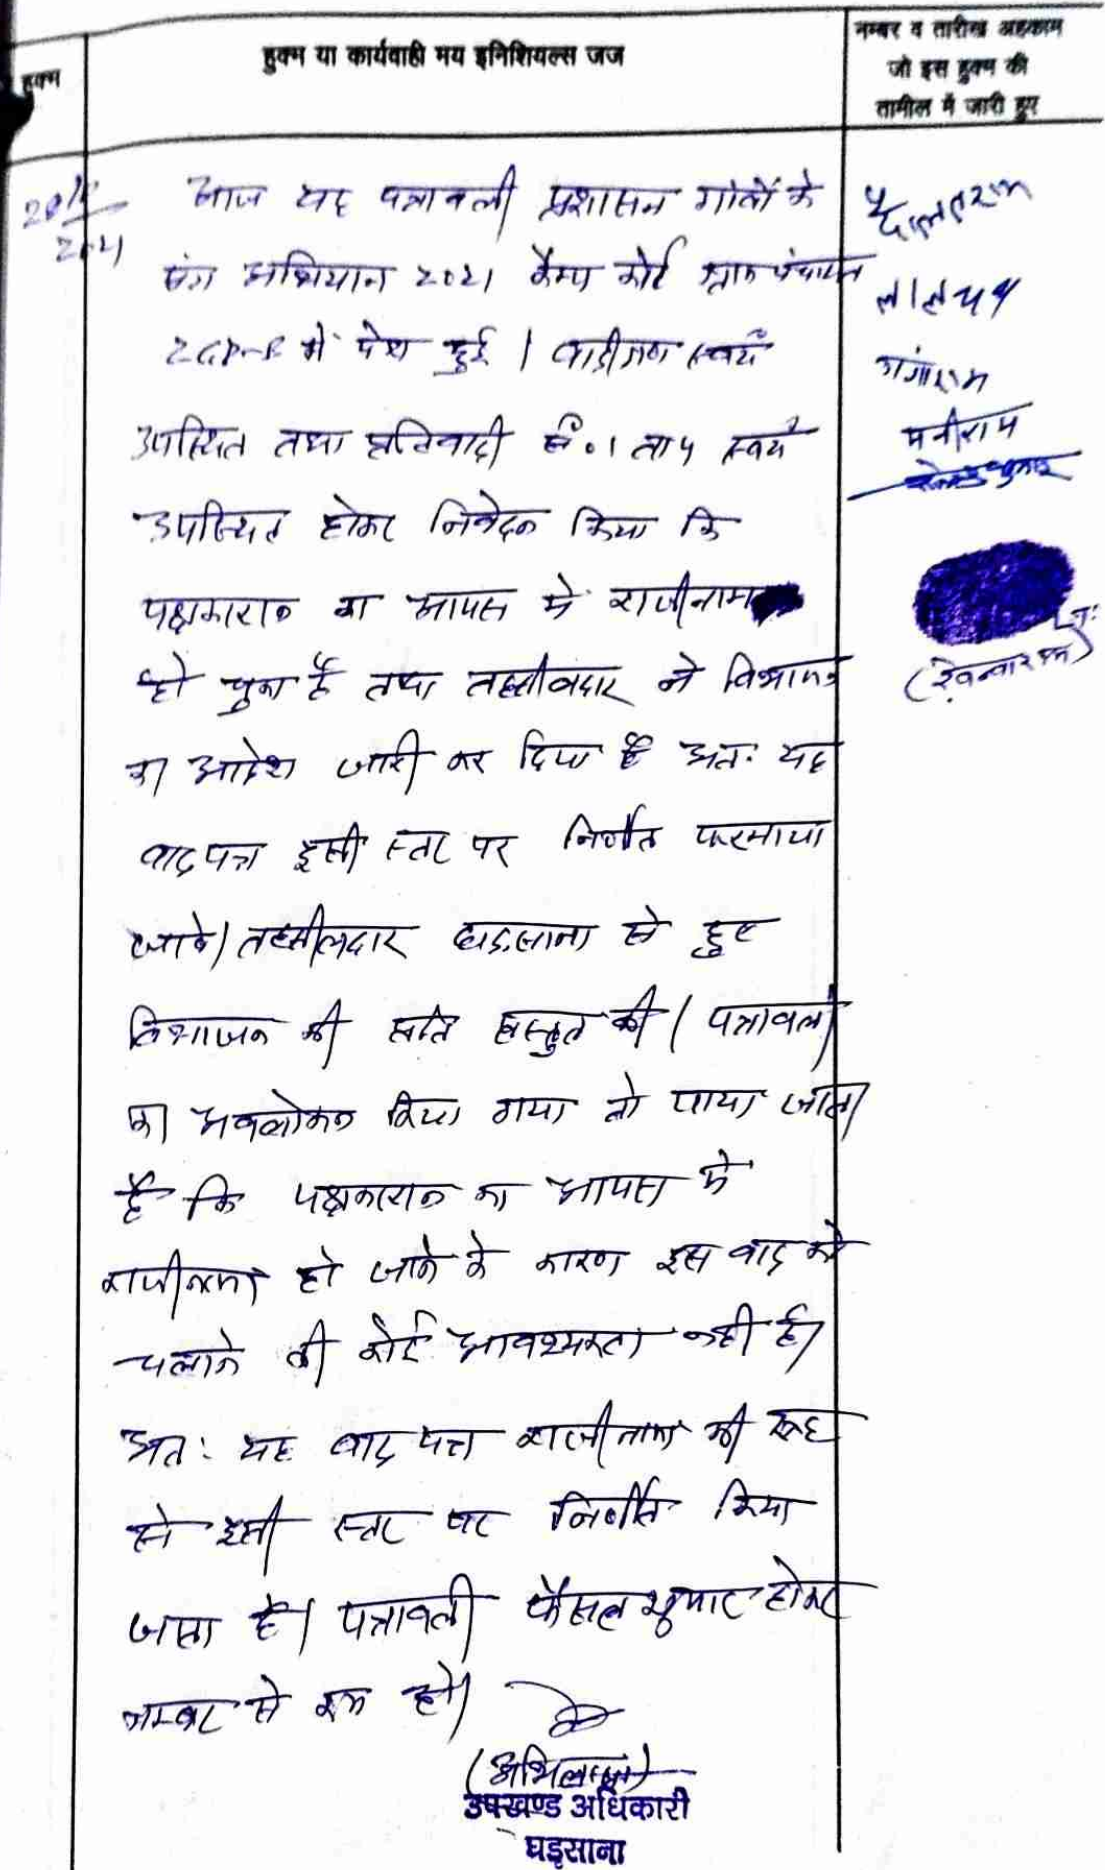 हुक्म
हुक्म या कार्यवाही मय इनिशियल्स जज
नम्बर व तारीख अहकाम
जो इस हुक्म की
तामील में जारी हुए
आज यह पत्रावली प्रशासन गांवों के
संग अभियान 2021 कैम्प कोर्ट ग्राम पंचायत
में पेश हुई। वादीगण स्वयं
उपस्थित तथा प्रतिवादी सं. 1 ता 5 स्वयं
उपस्थित होकर निवेदन किया कि
पक्षकारान का आपस मे राजीनामा
हो चुका है तथा तहसीलदार ने विभाजन
का आदेश जारी कर दिया है अतः यह
वादपत्र इसी स्तर पर निर्णीत फरमाया
जावे। तहसीलदार घड़साना से हुए
विभाजन की प्रति प्रस्तुत की। पत्रावली
का अवलोकन किया गया तो पाया जाता
है कि पक्षकारान का आपस मे
राजीनामा हो जाने के कारण इस वाद को
चलाने की कोई आवश्यकता नही है।
अतः यह वाद पत्र राजीनामा की रूह
से इसी स्तर पर निर्णीत किया
जाता है। पत्रावली फैसल शुमार होकर
नम्बर से कम हो।
दौलतराम
लालचन्द
गंगाराम
मनीराम
(अभिलाषा)
उपखण्ड अधिकारी
घड़साना